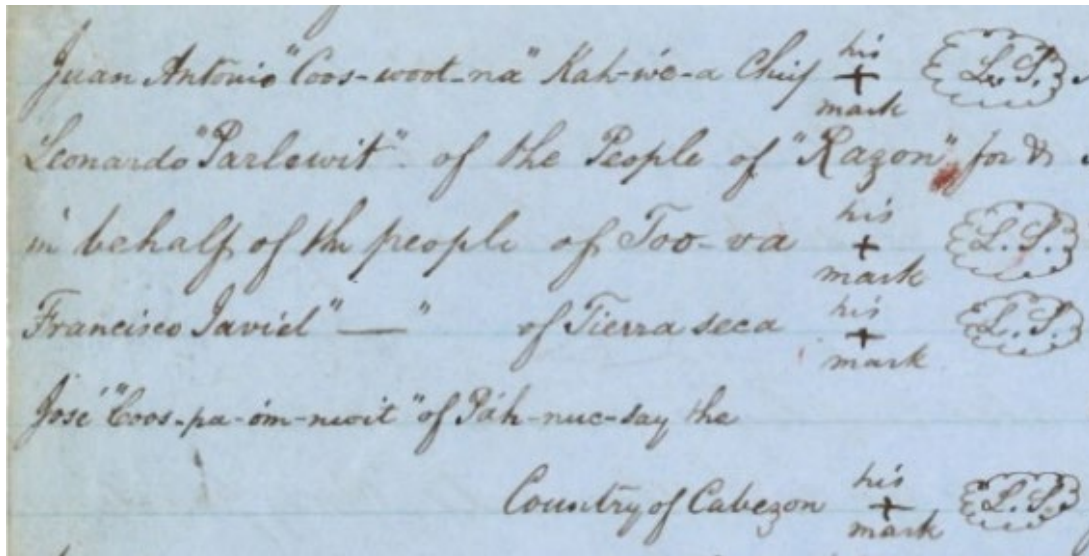 his
Juan Antonio "Coos-woot-na" Kah-we-a Chief + L.S.
mark
Leonardo "Parlewit" of the People of "Razon" for &
his
in behalf of the people of Too-va + L.S.
mark
his
Francisco Javiel "—" of Tierra seca + L.S.
mark
José "Coos-pa-óm-nuit" of Páh-nuc-say the
his
Country of Cabezon + L.S.
mark